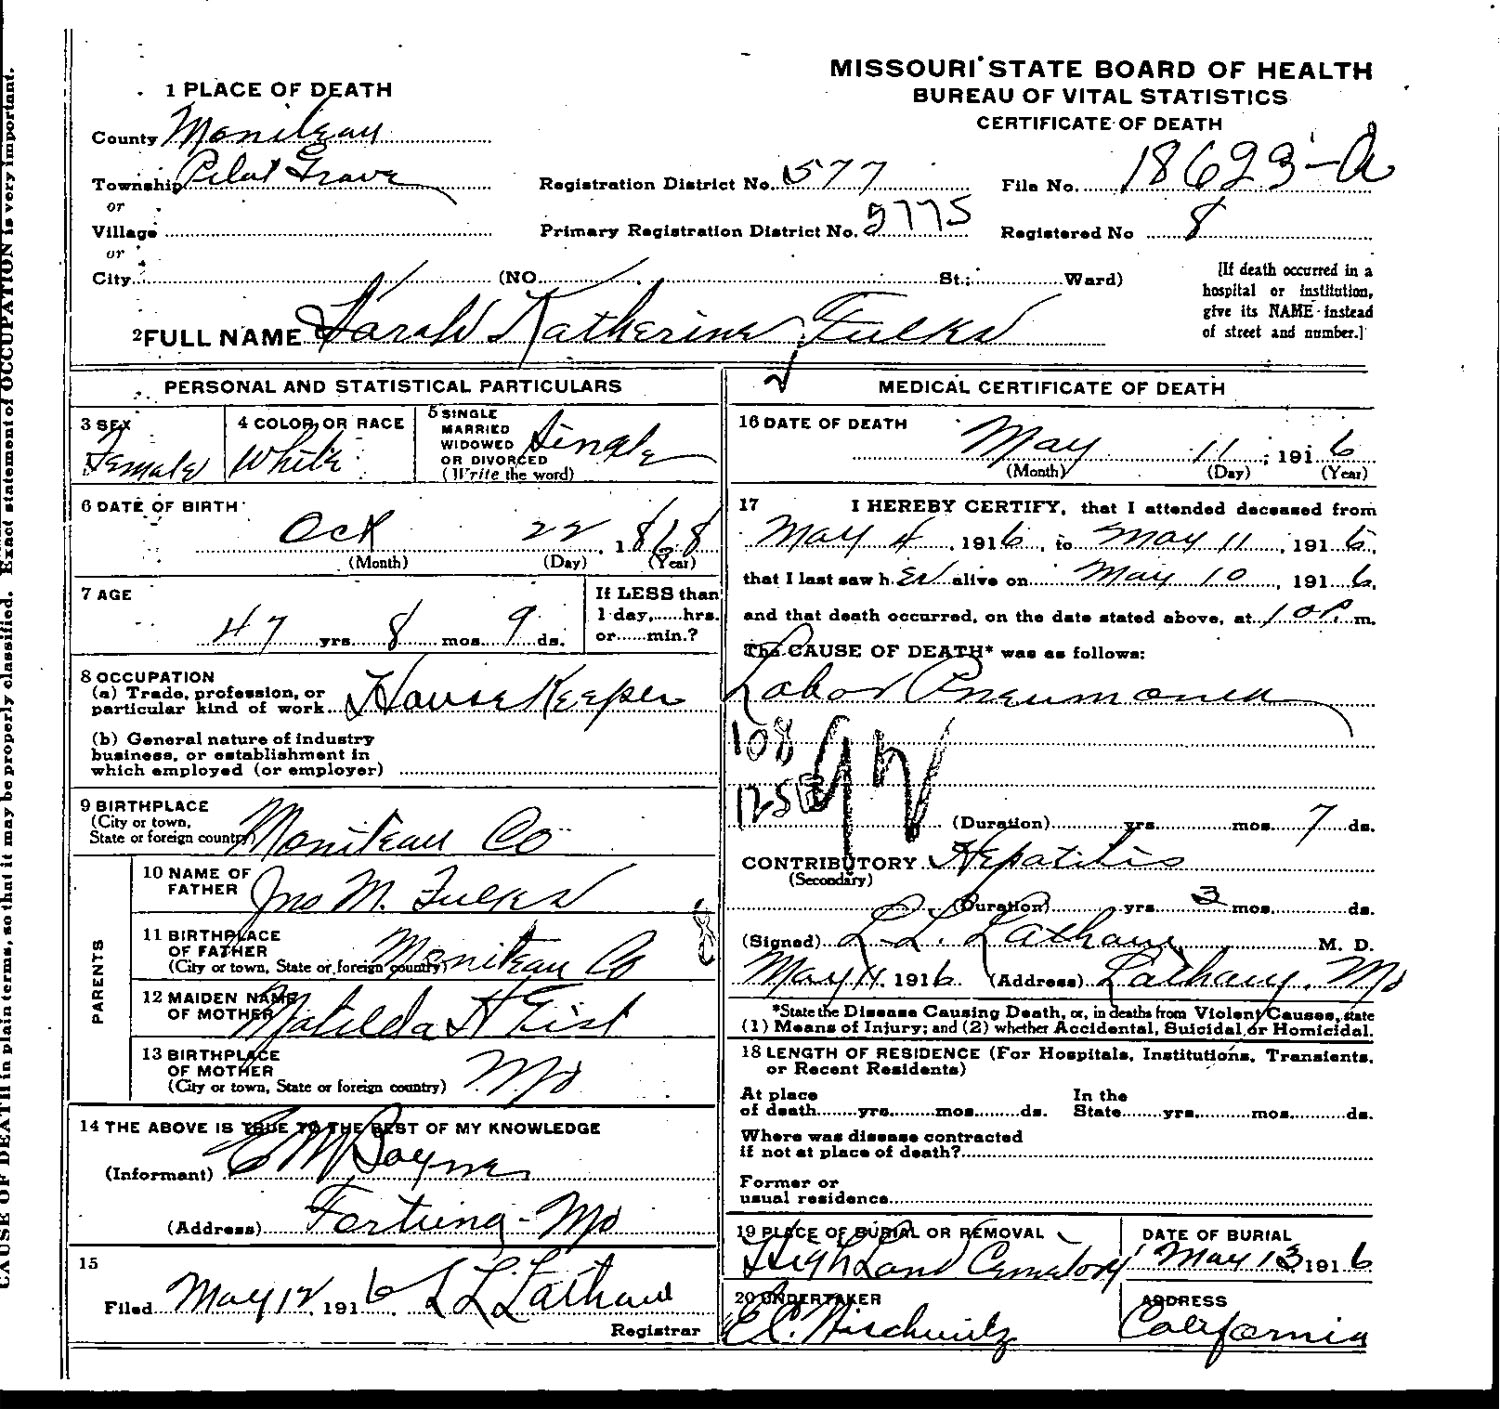 MISSOURI STATE BOARD OF HEALTH
BUREAU OF VITAL STATISTICS
CERTIFICATE OF DEATH
1 PLACE OF DEATH
County Moniteau
Township Pilot Grove
or
Village
or
City (NO. St.; Ward)
Registration District No. 577
File No. 18623-A
Primary Registration District No. 5775
Registered No 8
[If death occurred in a
hospital or institution,
give its NAME instead
of street and number.]
2 FULL NAME Sarah Katherine Fulks
PERSONAL AND STATISTICAL PARTICULARS
3 SEX
Female
4 COLOR OR RACE
White
5 SINGLE
MARRIED
WIDOWED
OR DIVORCED
(Write the word)
Single
6 DATE OF BIRTH
Oct 22, 1868
(Month) (Day) (Year)
7 AGE
47 yrs. 8 mos. 9 ds.
If LESS than
1 day, hrs.
or min.?
8 OCCUPATION
(a) Trade, profession, or
particular kind of work House Keeper
(b) General nature of industry
business, or establishment in
which employed (or employer)
9 BIRTHPLACE
(City or town,
State or foreign country) Moniteau Co
PARENTS
10 NAME OF
FATHER Jno M. Fulks
11 BIRTHPLACE
OF FATHER
(City or town, State or foreign country) Moniteau Co
12 MAIDEN NAME
OF MOTHER Matilda H Gist
13 BIRTHPLACE
OF MOTHER
(City or town, State or foreign country) Mo
14 THE ABOVE IS TRUE TO THE BEST OF MY KNOWLEDGE
(Informant) E M
(Address) Fortuna - Mo
15
Filed May 12, 1916 L L Latham
Registrar
MEDICAL CERTIFICATE OF DEATH
16 DATE OF DEATH
May 11, 1916
(Month) (Day) (Year)
17 I HEREBY CERTIFY, that I attended deceased from
May 4, 1916, to May 11, 1916,
that I last saw her alive on May 10, 1916,
and that death occurred, on the date stated above, at 1 00 P. m.
The CAUSE OF DEATH* was as follows:
Labor Pneumonia
108
92
125
(Duration) yrs. mos. 7 ds.
CONTRIBUTORY Hepatitis
(Secondary)
(Duration) yrs. 3 mos. ds.
(Signed) L. L. Latham M. D.
May 11, 1916 (Address) Latham, Mo
*State the Disease Causing Death, or, in deaths from Violent Causes, state
(1) Means of Injury; and (2) whether Accidental, Suicidal, or Homicidal.
18 LENGTH OF RESIDENCE (For Hospitals, Institutions, Transients,
or Recent Residents)
At place
of death yrs. mos. ds.
In the
State yrs. mos. ds.
Where was disease contracted
if not at place of death?
Former or
usual residence
19 PLACE OF BURIAL OR REMOVAL
High Land Cemetory
DATE OF BURIAL
May 13, 1916
20 UNDERTAKER
E C. Nischwitz
ADDRESS
California
CAUSE OF DEATH in plain terms, so that it may be properly classified. Exact statement of OCCUPATION is very important.